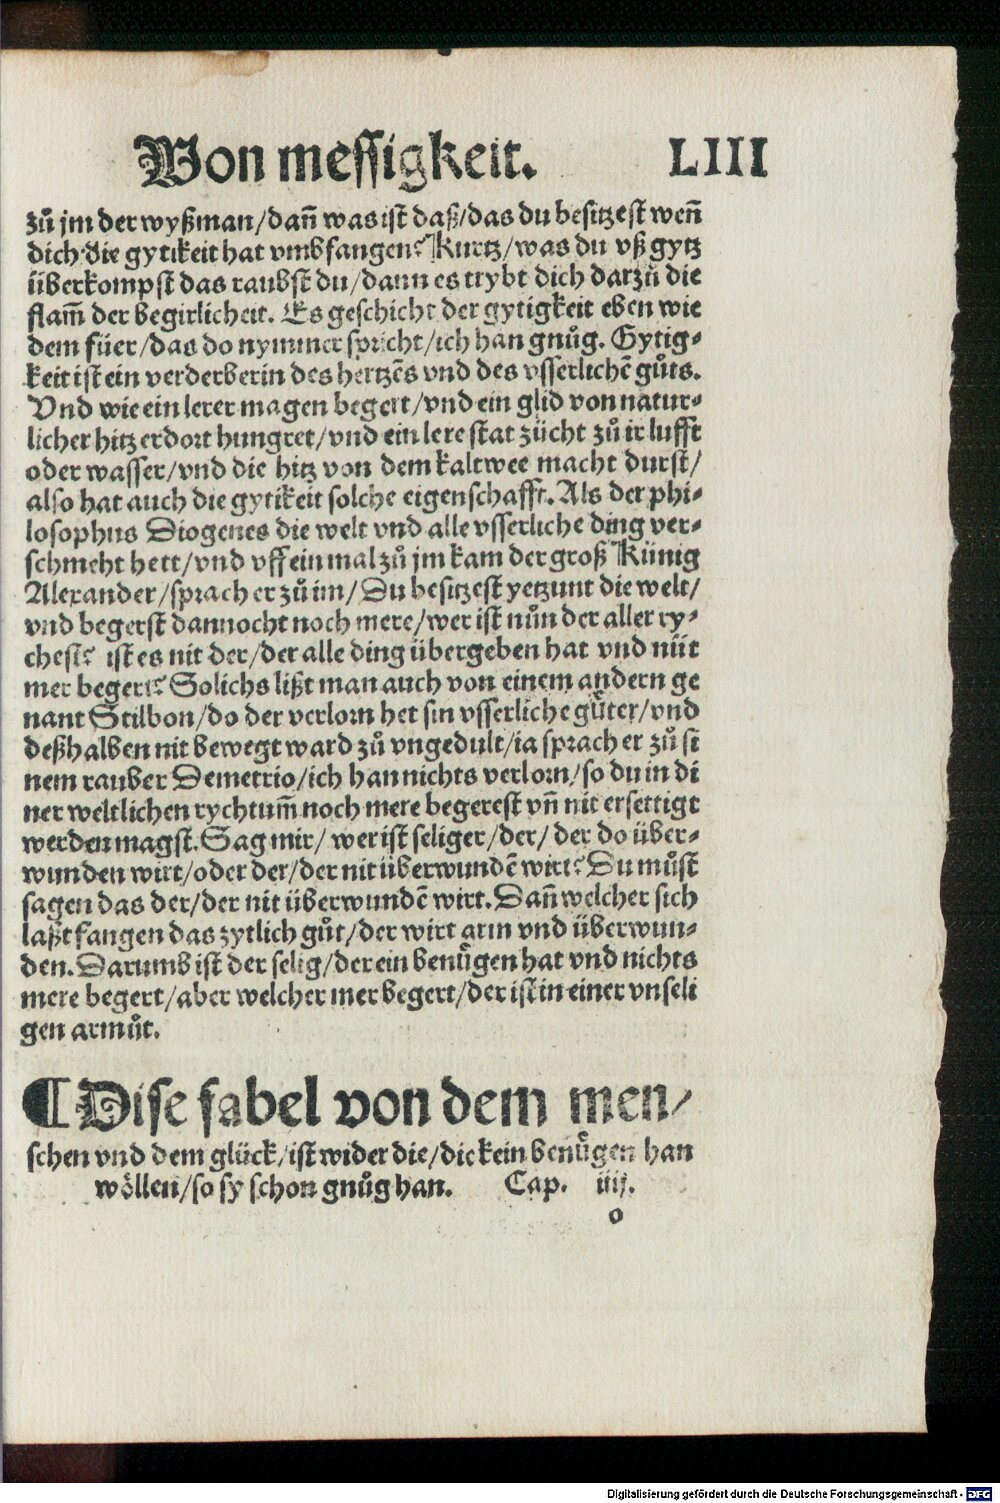 Von messigkeit. LIII
zů jm der wyßman/dañ was ist daß/das du besitzest weñ
dich die gytikeit hat vmbfangen? Kurtz/was du vß gytz
überkompst das raubst du/dann es trybt dich darzů die
flam̃ der begirlicheit. Es geschicht der gytigkeit eben wie
dem füer/das do nymmer spricht/ich han gnůg. Gytig⸗
keit ist ein verderberin des hertzēs vnd des vsserlichē gůts.
Vnd wie ein lerer magen begert/vnd ein glid von natur⸗
licher hitz erdort hungret/vnd ein lere stat zücht zů ir lufft
oder wasser/vnd die hitz von dem kaltwee macht durst/
also hat auch die gytikeit solche eigenschafft. Als der phi⸗
losophus Diogenes die welt vnd alle vsserliche ding ver⸗
schmeht hett/vnd vff ein mal zů jm kam der groß Künig
Alexander/sprach er zů im/Du besitzest yetzunt die welt/
vnd begerst dannocht noch mere/wer ist nůn der aller ry⸗
chest? ist es nit der/der alle ding übergeben hat vnd nüt
mer begert? Solichs lißt man auch von einem andern ge
nant Stilbon/do der verlorn het sin vsserliche gůter/vnd
deßhalben nit bewegt ward zů vngedult/ia sprach er zů si
nem rauber Demetrio/ich han nichts verlorn/so du in di
ner weltlichen rychtum̃ noch mere begerest vñ nit ersettigt
werden magst. Sag mir/ wer ist seliger/der/ der do über⸗
wunden wirt/oder der/der nit überwundē wirt? Du můst
sagen das der/der nit überwundē wirt. Dañ welcher sich
laßt fangen das zytlich gůt/der wirt arm vnd überwun⸗
den. Darumb ist der selig/der ein benůgen hat vnd nichts
mere begert/aber welcher mer begert/der ist in einer vnseli
gen armůt.
¶ Dise fabel von dem men/
schen vnd dem glück/ist wider die/die kein benůgen han
wöllen/so sy schon gnůg han. Cap. iiij.
o
Digitalisierung gefördert durch die Deutsche Forschungsgemeinschaft - DFG